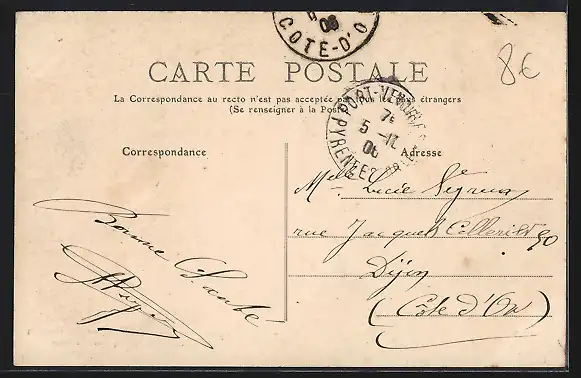 06
COTE-D'O
8€
CARTE POSTALE
La Correspondance au recto n'est pas acceptée par tous les pays étrangers
(Se renseigner à la Poste)
PORT-VENDRES
7E
5 -11
06
PYRENEES
Correspondance
Adresse
Melle Lucie
rue Jacques Cellerier 50
Dijon
(Côte d'Or)
Bonne Santé